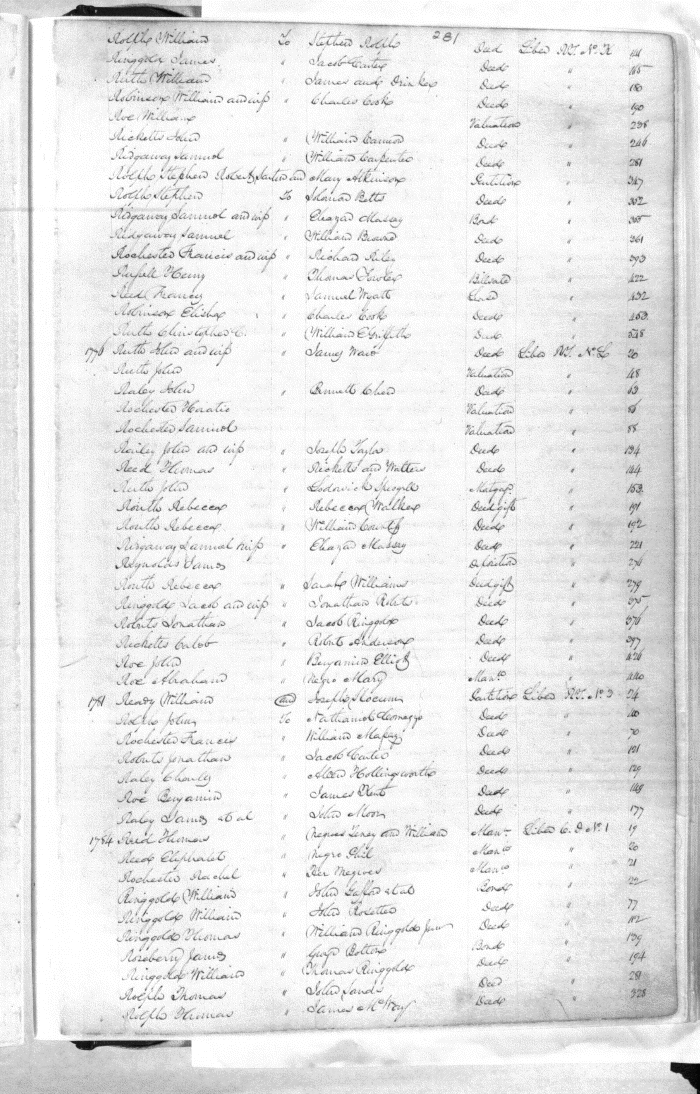 281
Rolph William To Stephen Rolph Deed Liber RT. No. K
Ringgold James " Jacob Carter Deed " 165
Ruth William " James and Drinker Deed " 180
Robinson William and wife " Charles Cook Deed " 190
Roe William Valuation " 238
Ricketts John " William Cannon Deed " 246
Ridgaway Samuel " William Carpenter Deed " 281
Rolph Stephen Robert and Mary Atkinson Partition " 347
Rolph Stephen To Solomon Betts Deed " 352
Ridgaway Samuel and wife " Eleazar Massey Bond " 355
Ridgaway Samuel " William Brown Deed " 361
Rochester Francis and wife " Richard Riley Deed " 393
Henry " Thomas Billsale " 422
Reed " Samuel Wyatt " 432
Robinson Elisha " Charles Cook Deed " 453
Ruth Christopher C. " William Griffith Deed " 548
1776 Ruth John and wife " James Deed Liber RT. No. L 20
Ruth John Valuation " 48
Raley John " Bennett Chew Deed " 63
Rochester Horatio Valuation " 86
Rochester Samuel Valuation " 88
Railey John and wife " Joseph Taylor Deed " 134
Reed Thomas " Ricketts and Walters Deed " 144
Ruth John " Lodowick " 153
Routh Rebecca " Rebecca Walker Deed gift " 191
Routh Rebecca " William County Deed " 192
Ridgaway Samuel wife " Eleazar Massey Deed " 221
Reynolds James Deposition " 276
Routh Rebecca " Sarah Williams Deed gift " 279
Ringgold Jacob and wife " Jonathan Roberts Deed " 375
Roberts Jonathan " Jacob Ringgold Deed " 376
Ricketts Caleb " Robert Anderson Deed " 397
Roe John " Benjamin Elliott Deed " 426
Roe Abraham " Negro Mary Man.o " 440
1781 Ready William and Joseph Slocum Partition Liber RT. No. 24
Rolph John To Nathaniel Comegys Deed " 40
Rochester Francis " William Deed " 70
Roberts Jonathan " Jacob Carter Deed " 121
Raley Charles " Abern Hollingsworth Deed " 129
Roe Benjamin " James Deed " 149
Raley James et al " John Moon Deed " 177
1784 Reed Thomas " Negroes and William Man.o Liber C. D No. 1 19
Reed Eliphalet " Negro Phil Man.o " 20
Rochester Rachel " Her Negroes Man.o " 21
Ringgold William " John et al Bond " 22
Ringgold William " John Rosetter Deed " 77
Ringgold Thomas " William Ringgold Junr Deed " 112
Roseberry James " Bolton Bond " 139
Ringgold William " Thomas Ringgold Deed " 194
Rolph Thomas " John Sands Deed " 281
Rolph Thomas " James Deed " 328